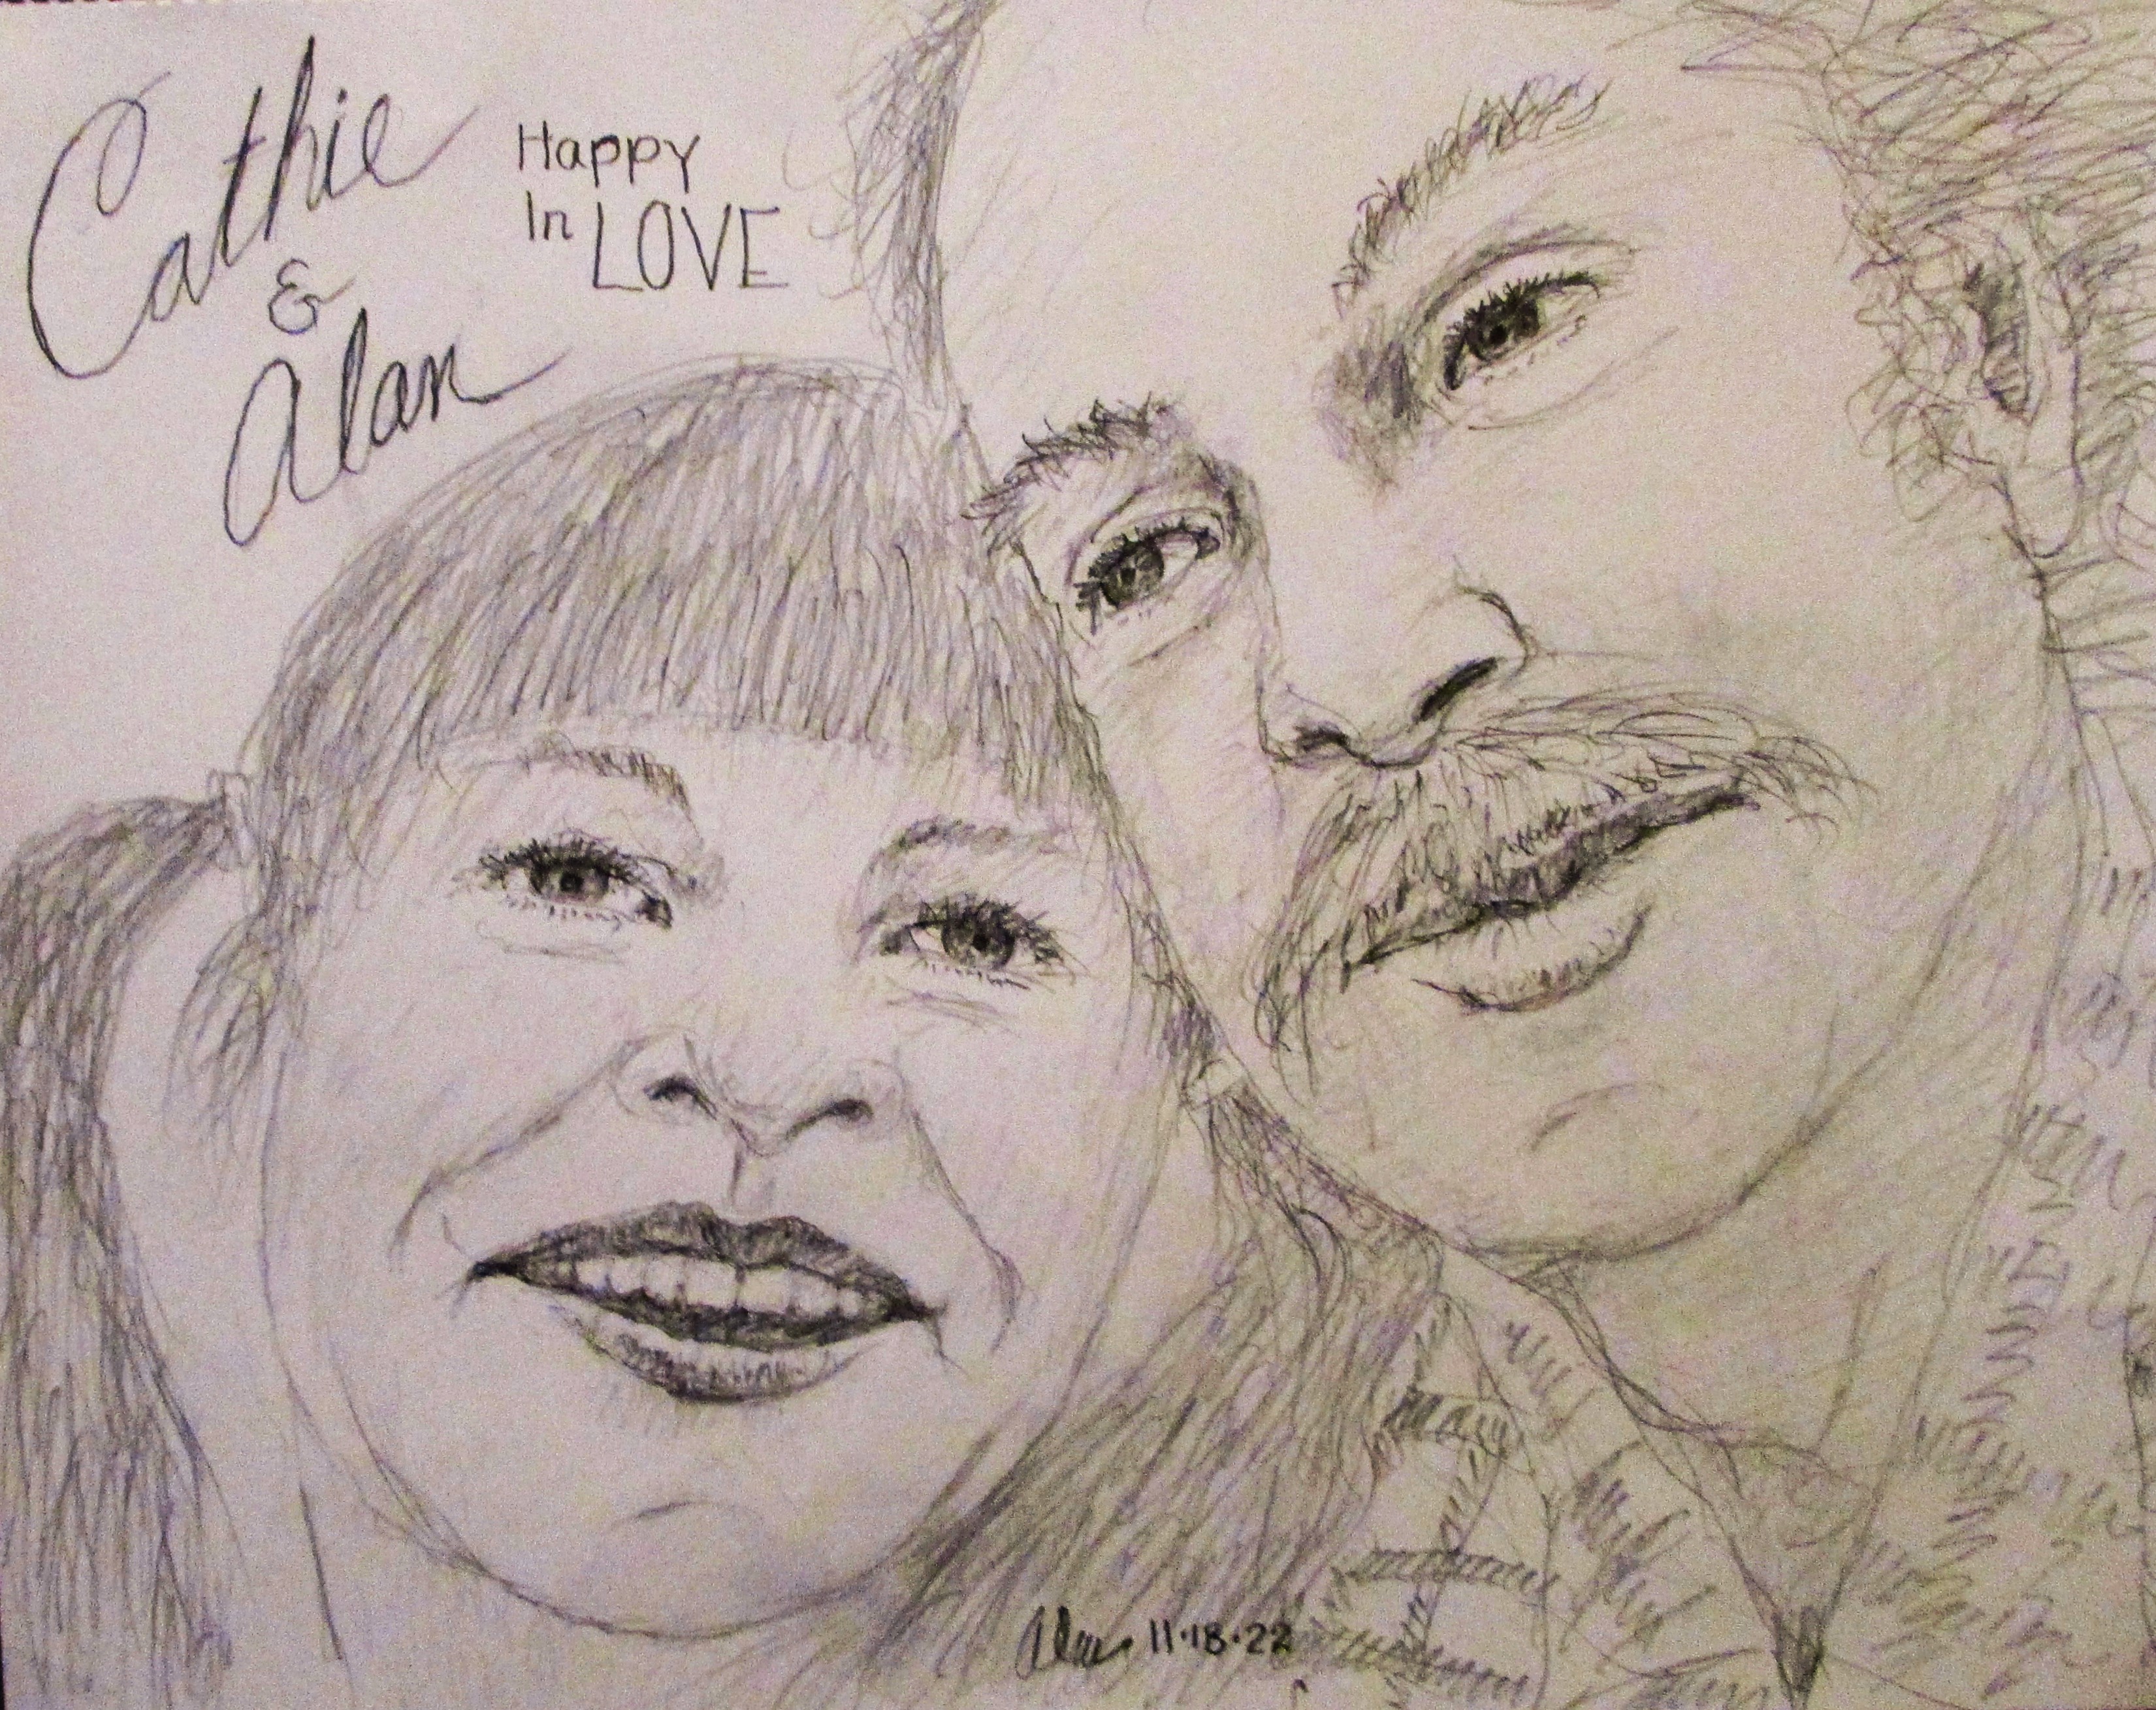 Cathie
&
Alan
Happy
In LOVE
Alan 11·18·22